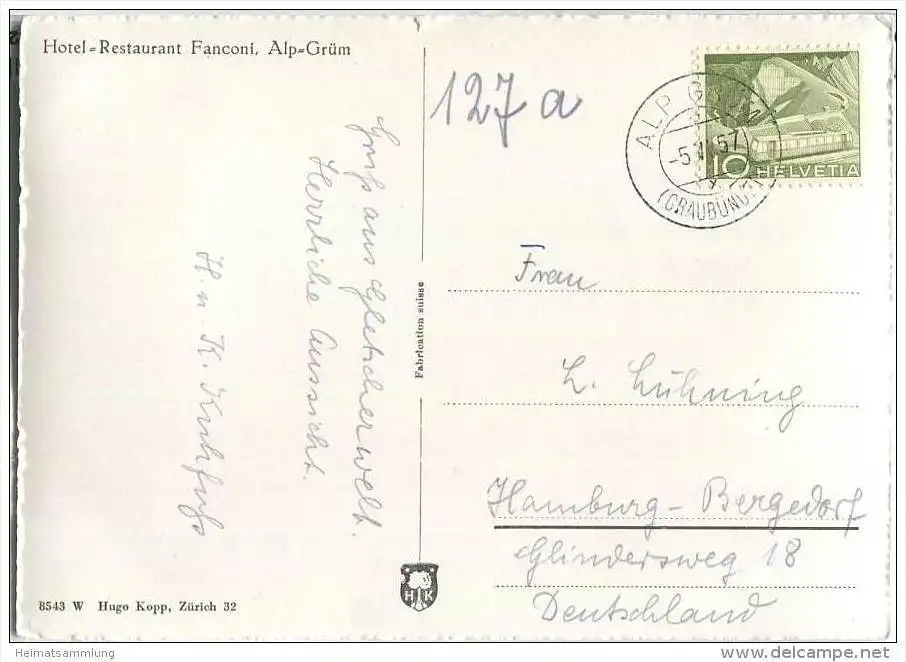 Hotel-Restaurant Fanconi, Alp-Grüm
127 a
ALP GRÜM
-5. 57
(GRAUBÜND
10 HELVETIA
Gruß aus Gletscherwelt.
Herrliche Aussicht.
H. u. K. Kuhfuß
Fabrication suisse
Frau
L. Lühning
Hamburg-Bergedorf
Glindersweg 18
Deutschland
H K
8543 W Hugo Kopp, Zürich 32
Heimatsammlung
www.delcampe.net